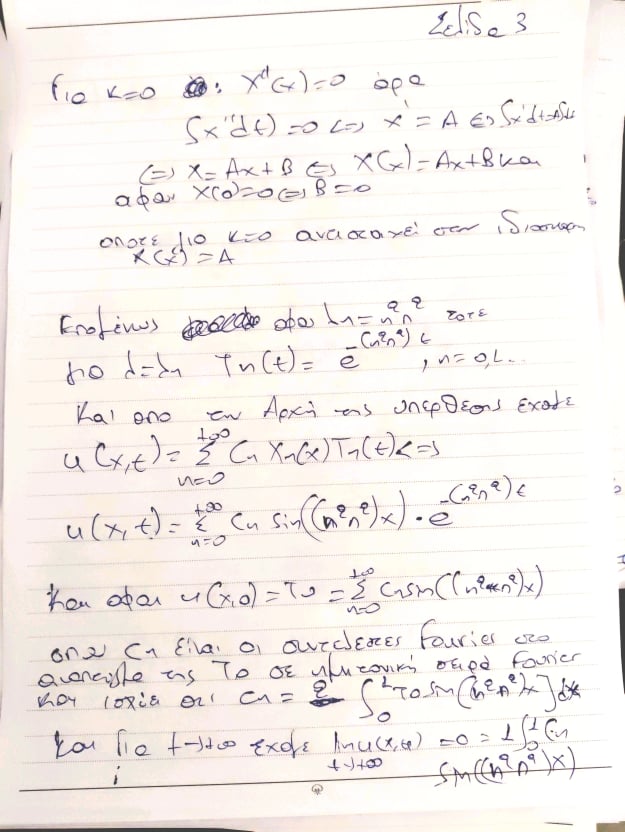 Σελίδα 3
Για κ=0 : X''(x)=0 άρα
∫x''dt)=0 <=> x' = A <=> ∫x'dt=∫A
<=> x = Ax+B <=> X(x)=Ax+B και
αφου X(0)=0 <=> B=0
οποτε για κ=0 αντιστοιχεί στην
X(x)=A
Επομένως αφου λn=n²π² τοτε
για λ=λn Tn(t)= e^-(n²π²)t , n=0,1...
Και απο την Αρχή της υπερθεσης εχουμε
u(x,t)= Σ_{n=0}^{+∞} Cn Xn(x)Tn(t)<=>
u(x,t)= Σ_{n=0}^{+∞} Cn sin((n²π²)x)·e^-(n²π²)t
Και αφου u(x,0)=T0 = Σ_{n=0}^{+∞} Cn sin((n²π²)x)
οπου Cn είναι οι συντελεστες Fourier στο
αναπτυγμα της T0 σε ημιτονική σειρά Fourier
και ισχύει οτι cn = 2 ∫_0^1 T0 sin(n²π²)x]dx
Και για t→+∞ εχουμε lim_{t→+∞} u(x,t) =0 = 1∫_0^1 Cn
sin((n²π²)x)